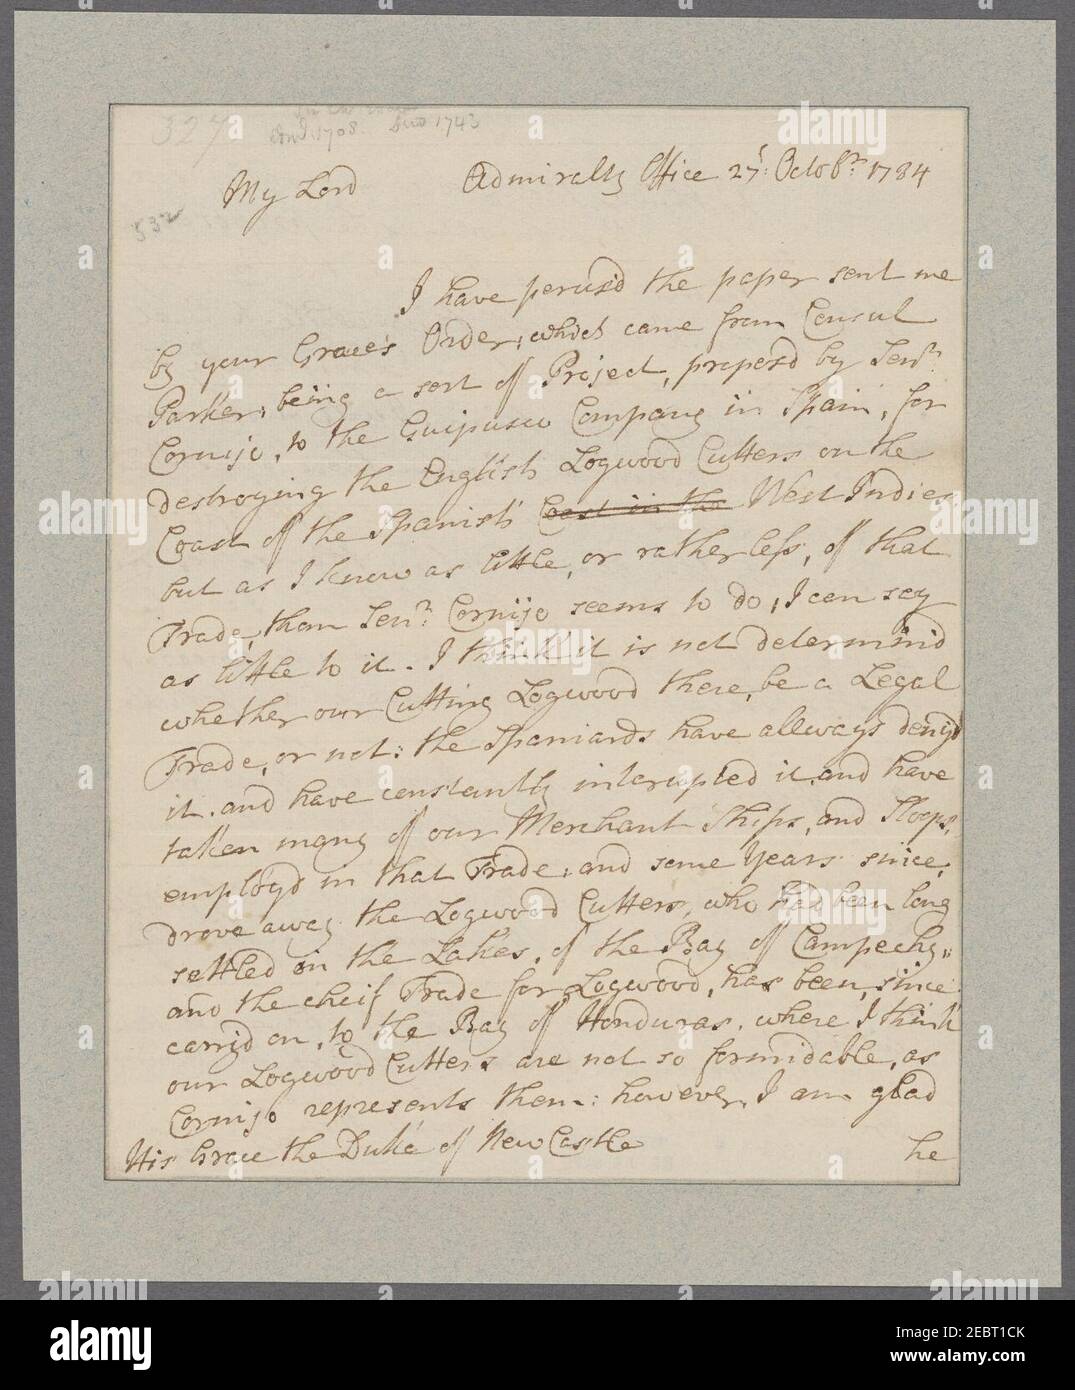 327
1708. 1743
My Lord Admiralty Office 27: Octobr. 1734
532
I have perus'd the paper sent me
by your Grace's Order, which came from Consul
Parker, being a sort of Project, propos'd by Senr.
Cornijo, to the Guipusco Company in Spain, for
destroying the English Logwood Cutters on the
Coast of the Spanish Coast in the West Indies.
but as I know as little, or rather less, of that
Trade, than Senr. Cornijo seems to do, I can say
as little to it. I think it is not determind
whether our Cutting Logwood there, be a Legal
Trade, or not: the Spaniards have allways denyd
it, and have constantly interupted it, and have
taken many of our Merchant Ships, and Sloops,
employ'd in that Trade, and some Years since,
drove away the Logwood Cutters, who had been long
settled in the Lakes, of the Bay of Campechy,
and the cheif Trade for Logwood, has been, since
carryd on, to the Bay of Honduras, where I think
our Logwood Cutters are not so formidable, as
Cornijo represents them: however, I am glad
His Grace the Duke of NewCastle he
alamy
Image ID: 2EBT1CK
www.alamy.com